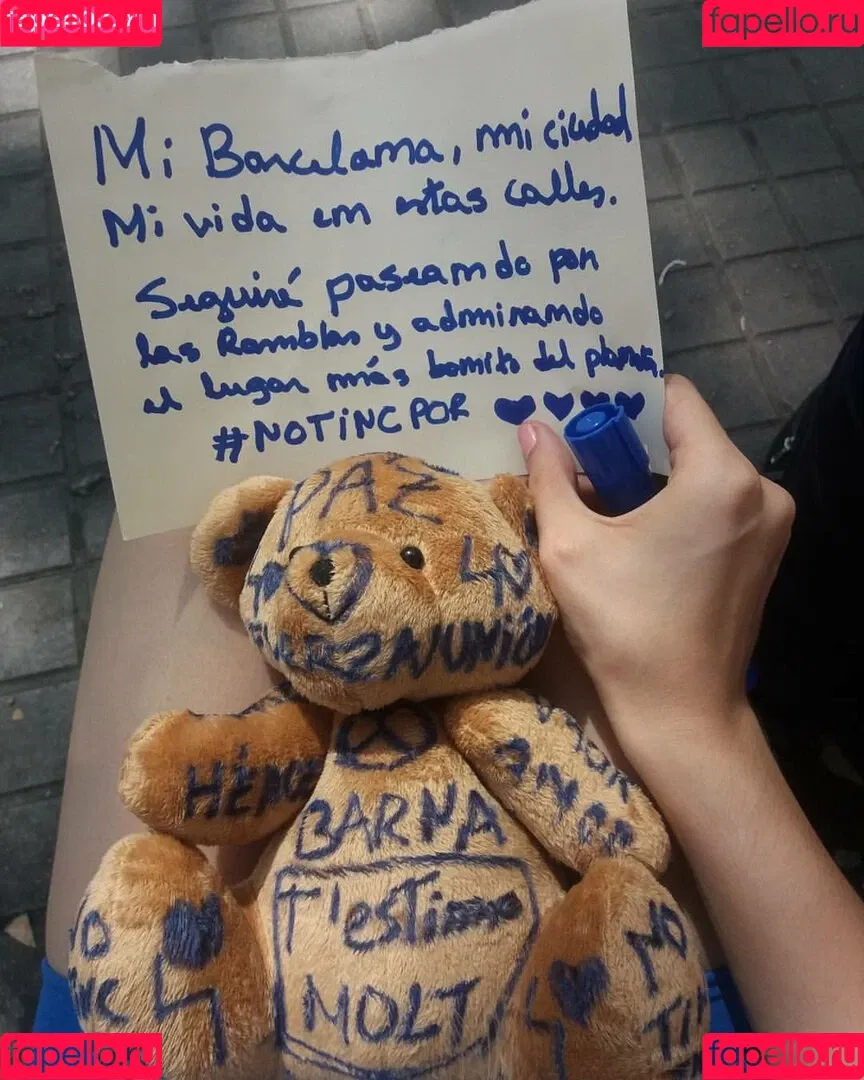 fapello.ru
fapello.ru
Mi Barcelona, mi ciudad
Mi vida en estas calles.
Seguiré paseando por
las Ramblas y admirando
el lugar más bonito del planeta.
#NOTINCPOR ♥♥♥♥
PAZ
FUERZA/UNIÓN
BARNA
T'estimo
MOLT
NO
NO
TI
fapello.ru
fapello.ru